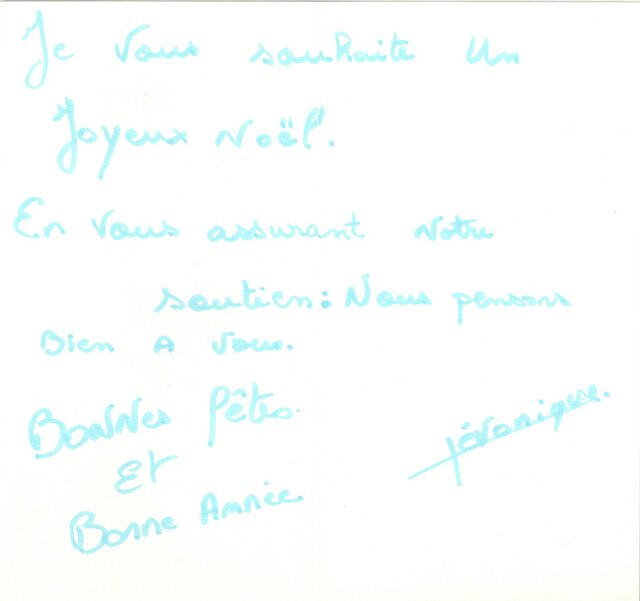 Je vous souhaite un
Joyeux Noël.
En vous assurant notre
soutien: Nous pensons
Bien A vous.
BONNes fêtes
ET
Bonne Année